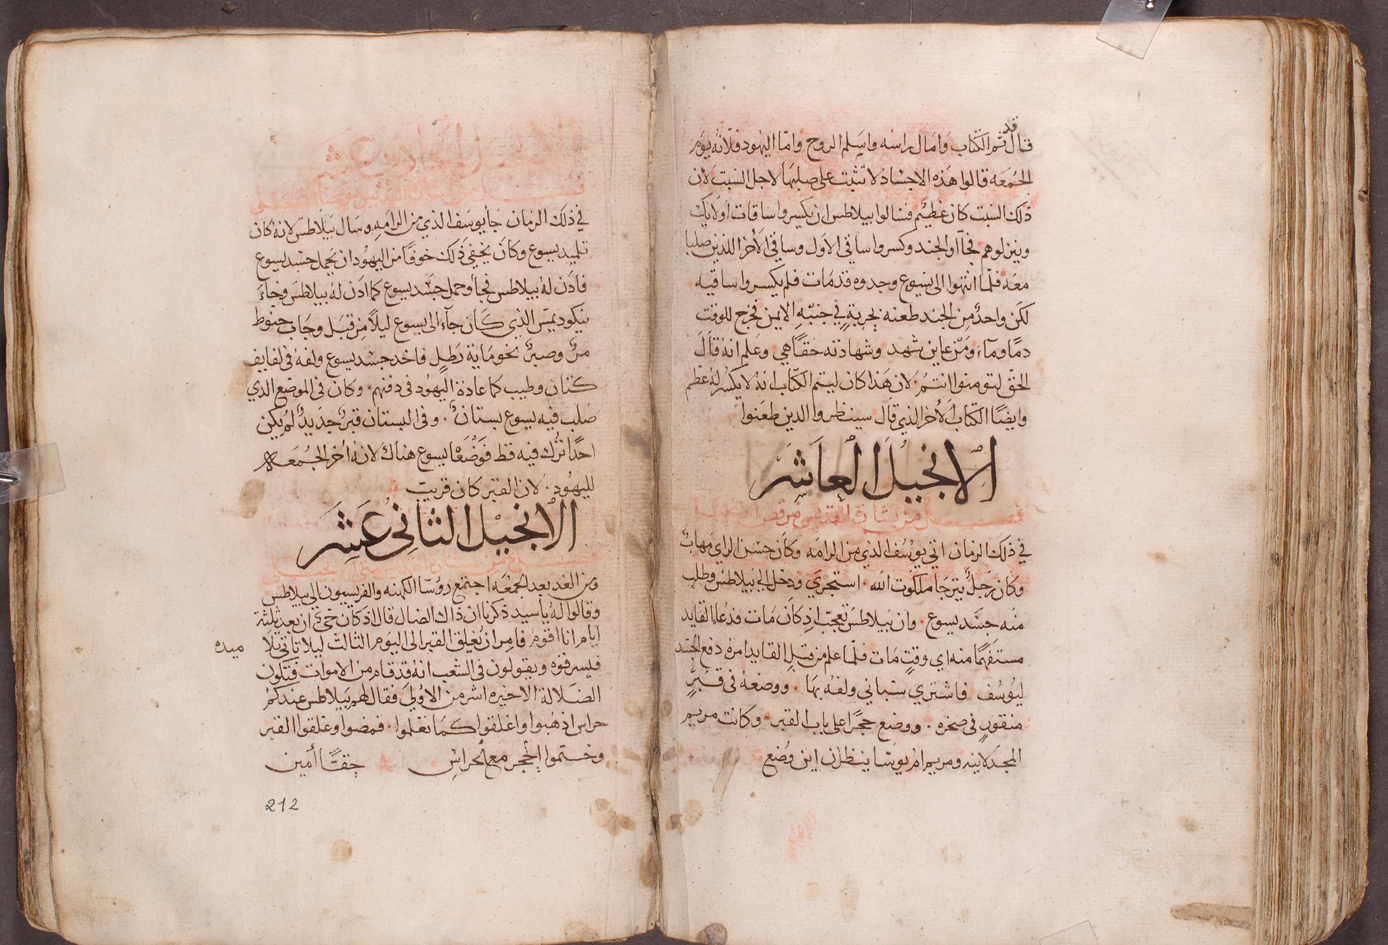 قد
قال تم الكتاب وامال راسه واسلم الروح واما اليهود فلانه يوم
الجمعه قالوا هذه الاجساد لا تثبت على صلبها لاجل السبت لان
ذلك السبت كان عظيم فسالوا بيلاطس ان يكسروا ساقات اولايك
وينزلوهم فجآوا الجند وكسروا ساقي الاول وساقي الاخر اللذين صلبا
معه فلما انتهوا الى يسوع وجدوه قد مات فلم يكسروا ساقيه
لكن واحد من الجند طعنه بحربةٍ في جنبه الايمن فخرج للوقت
دمًا وماء ومن عاين شهد وشهادته حقًا هي وعلم انه قال
الحق لتومنوا انتم لان هذا كان ليتم الكتاب انه لا يكسر له عظم
وايضًا الكتاب الاخر الذي قال سينظروا الذين طعنوا
الانجيل العاشر
فصل من بشارة القديس مرقص
في ذلك الزمان اتى يوسف الذي من الرامه وكان حسن الراي مهاب
وكان رجل يترجا ملكوت الله استجرى ودخل الى بيلاطس وطلب
منه جسد يسوع وان بيلاطس تعجب اذ كان مات فدعا القايد
مستفهمًا منه اي وقتٍ مات فلما علم من قبل القايد امره دفع الجسد
ليوسف فاشترى سباني ولفه بها ووضعه في قبرٍ
منقورٍ في صخره ووضع حجرًا على باب القبر وكانت مريم
المجدلانيه ومريم ام يوسا ينظران اين وضع
الانجيل الحادي عشر
في ذلك الزمان جا يوسف الذي من الرامه وسال بيلاطس لانه كان
تلميد يسوع وكان يخفي ذلك خوفًا من اليهود ان يحمل جسد يسوع
فاذن له بيلاطس فجا وحمل جسد يسوع كما اذن له بيلاطس وجاء
نيكوديمس الذي كان جاء الى يسوع ليلاً من قبل وجاب حنوط
مر وصبر نحو ماية رطلٍ فاخد جسد يسوع ولفه في لفايف
كتان وطيب كما عادة اليهود في دفنهم وكان في الموضع الدي
صلب فيه يسوع بستان وفي البستان قبر جديد لم يكن
احدًا ترك فيه قط فوضعا يسوع هناك لانه اخر الجمعه
لليهود لان القبر كان قريب
الانجيل الثاني عشر
ومن الغد بعد الجمعه اجتمع روسا الكهنه والفريسيون الى بيلاطس
وقالوا له يا سيد ذكرنا ان ذاك الضال قال اذ كان حي ان بعد ثلثة
ايام انا اقوم فامر ان يغلق القبر الى اليوم الثالث ليلا تاتي تلا
ميده
فيسرقوه ويقولون في الشعب انه قد قام من الاموات فتكون
الضلالة الاخيره اشر من الاولى فقال لهم بيلاطس عندكم
حراس اذهبوا واغلقوا كما تعلموا فمضوا وغلقوا القبر
وختموا الحجر مع الحراس حقًا امين
212